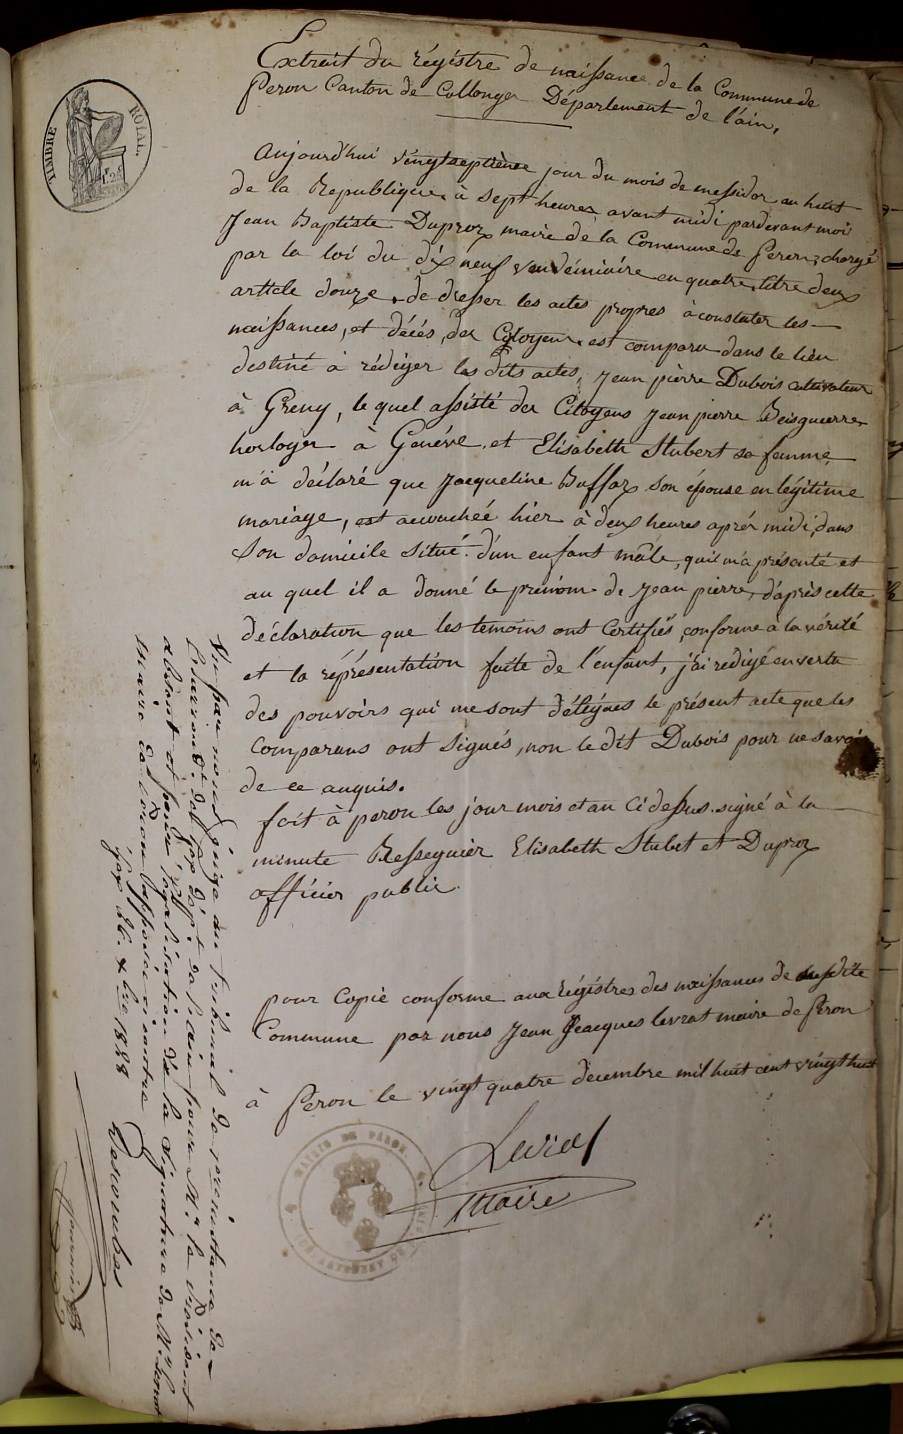 TIMBRE ROYAL
Extrait du régistre de naissance de la Commune de
Peron Canton de Collonge Département de l'ain,
Aujourd'hui vingtseptième jour du mois de messidor an huit
de la Republique à sept heures avant midi pardevant moi
Jean Baptiste Duproz maire de la Commune de Peron, chargé
par la loi du dix neuf vendémiaire an quatre, titre deux
article douze, de dresser les actes propres à constater les
naissances, et décés, des Citoyens, est comparu dans le lieu
destiné à rédiger les dits actes, Jean pierre Dubois cultivateur
à Greny, lequel assisté des Citoyens Jean pierre
horloger à Genéve, et Elisabeth Stubert sa femme,
m'a déclaré que Jacqueline Buffaz son épouse en légitime
mariage, est accouchéé hier à deux heures aprés midi, dans
son domicile situé. d'un enfant mâle, qu'il m'a présenté et
au quel il a donné le prénom de Jean pierre, d'après cette
déclaration que les temoins ont certifiés conforme à la vérité
et la réprésentation faite de l'enfant, j'ai redigé en vertu
des pouvoirs qui me sont délégues le présent acte que les
comparans ont signés, non le dit Dubois pour ne savoir
de ce enquis.
fait à peron les jour mois et an ci dessus. signé à la
minute Resseguier Elisabeth Stubet et Duproz
officier public.
pour Copie conforme aux régistres des naissances de susdite
Commune par nous Jean Jacques levrat maire de Peron
à Peron le vingt quatre decembre mil huit cent vingt huit
Levrat
Maire
MAIRIE DE PÉRON
Vu par nous juge au tribunal de premiere instance de
Gex dépt. de l'ain pour Mr. le Président
absent et pour légalisation de la signature de Mr. Levrat
maire de Péron apposée ci contre
Gex 26. Xbre 1828